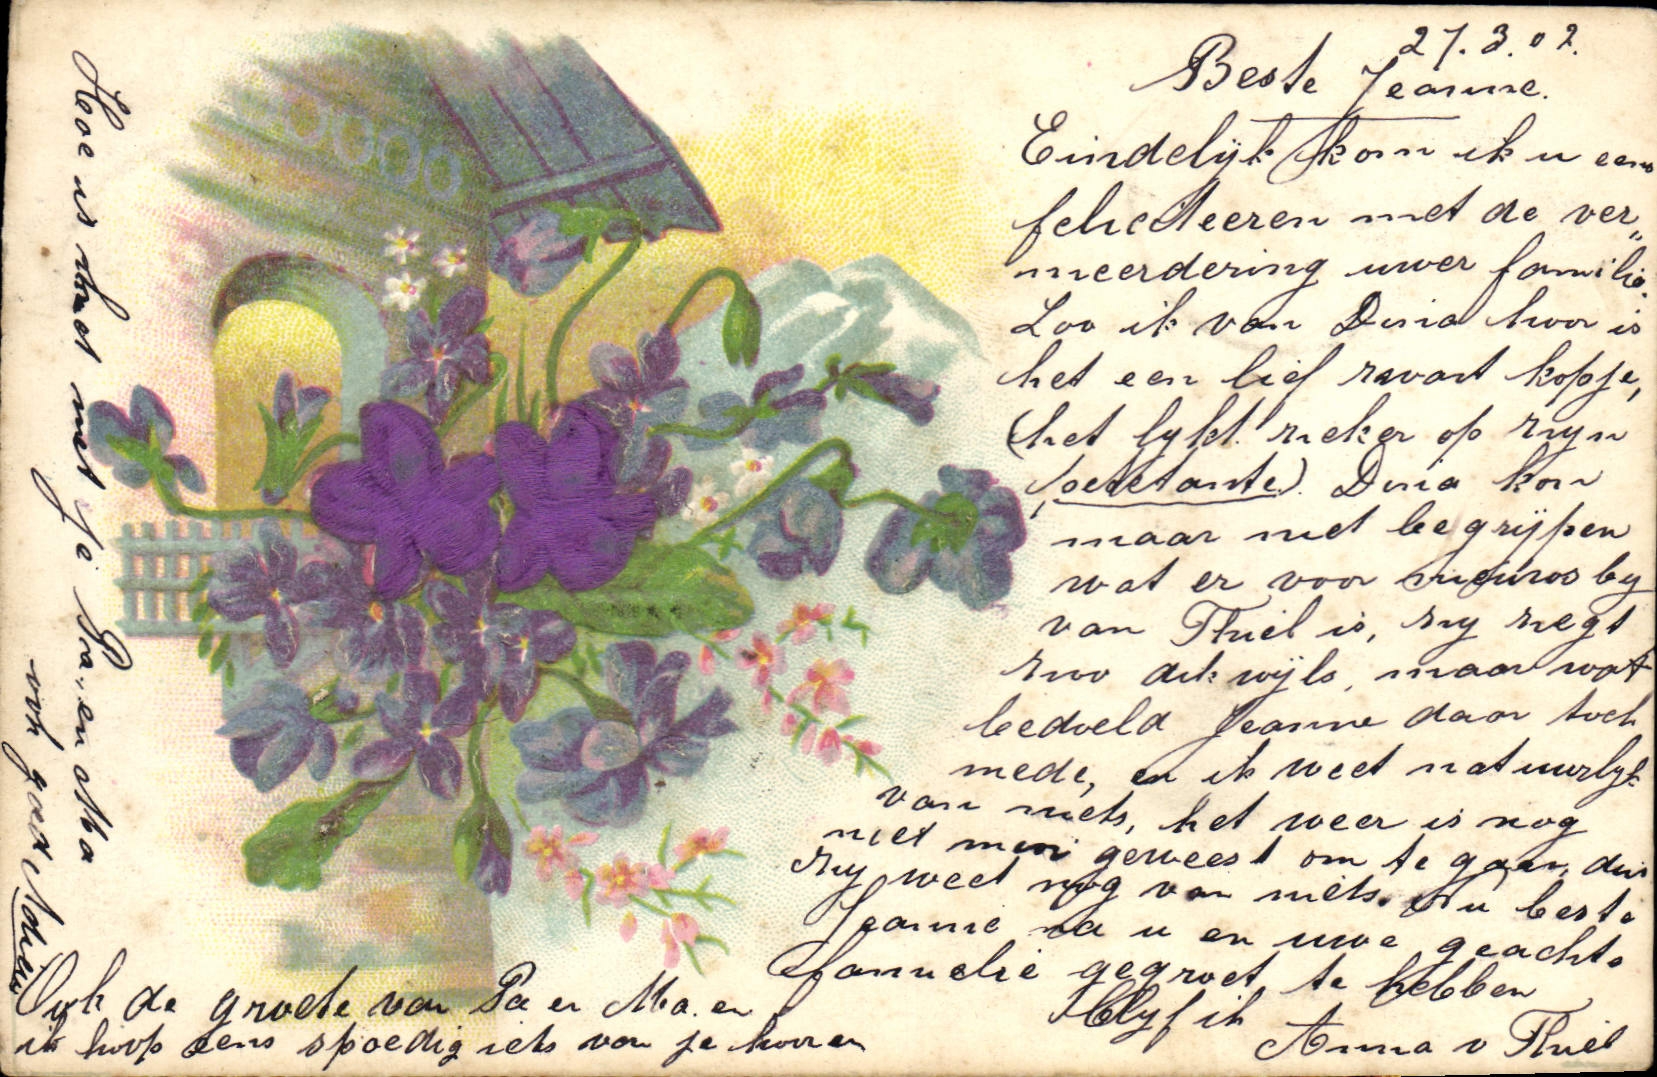 27.3.02.
Beste Jeanne.
Eindelijk kom ik u eens
feliciteeren met de ver„
meerdering uwer familie.
Zoo ik van Dina hoor is
het een lief zwart kopje,
(het lijkt zeker op zijn
peettante). Dina kon
maar niet begrijpen
wat er voor nieuws by
van Thiel is, zij zegt
zoo dikwijls, maar wat
bedoeld Jeanne daar toch
mede, en ik weet natuurlijk
van niets, het weer is nog
niet mooi geweest om te gaan, dus
zij weet nog van niets. Nu beste
Jeanne na u en uwe geachte
familie gegroet te hebben
Blijf ik
Anna v Thiel
Ook de groete van Pa en Ma. en
ik hoop eens spoedig iets van je hooren
Hoe is het met je Pa. en Ma
ook goed Adieu